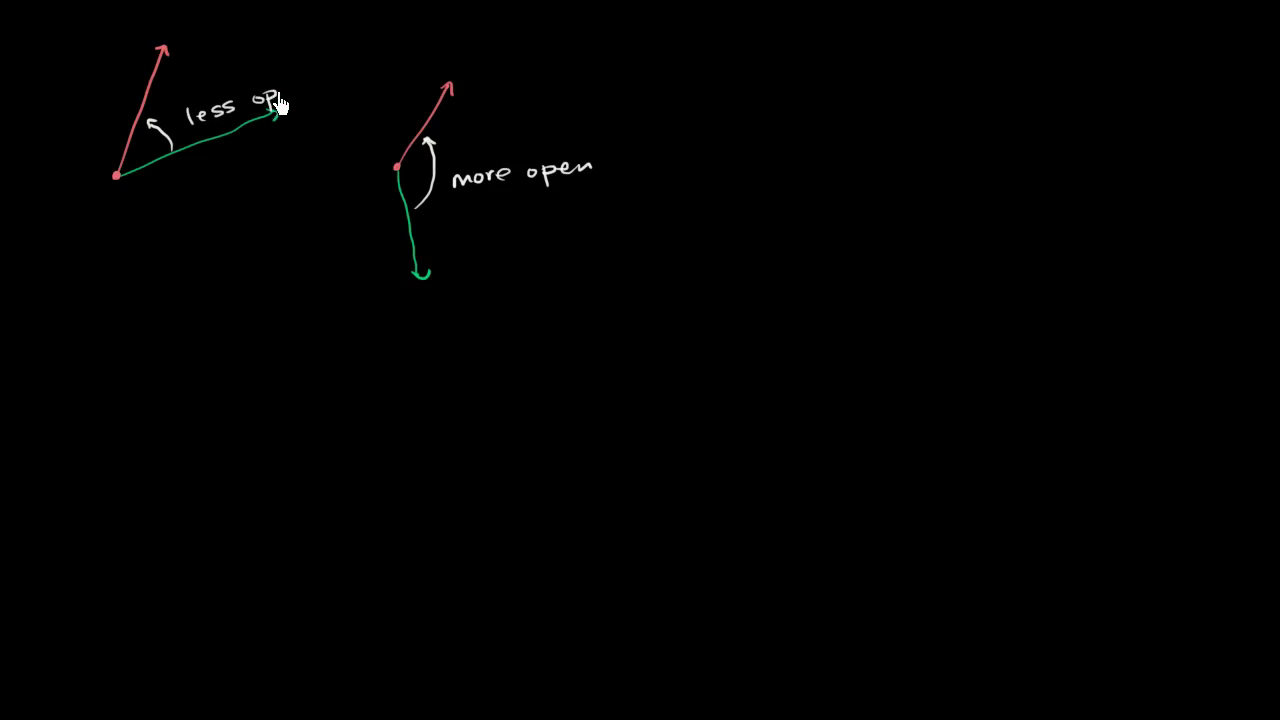 less op
more open